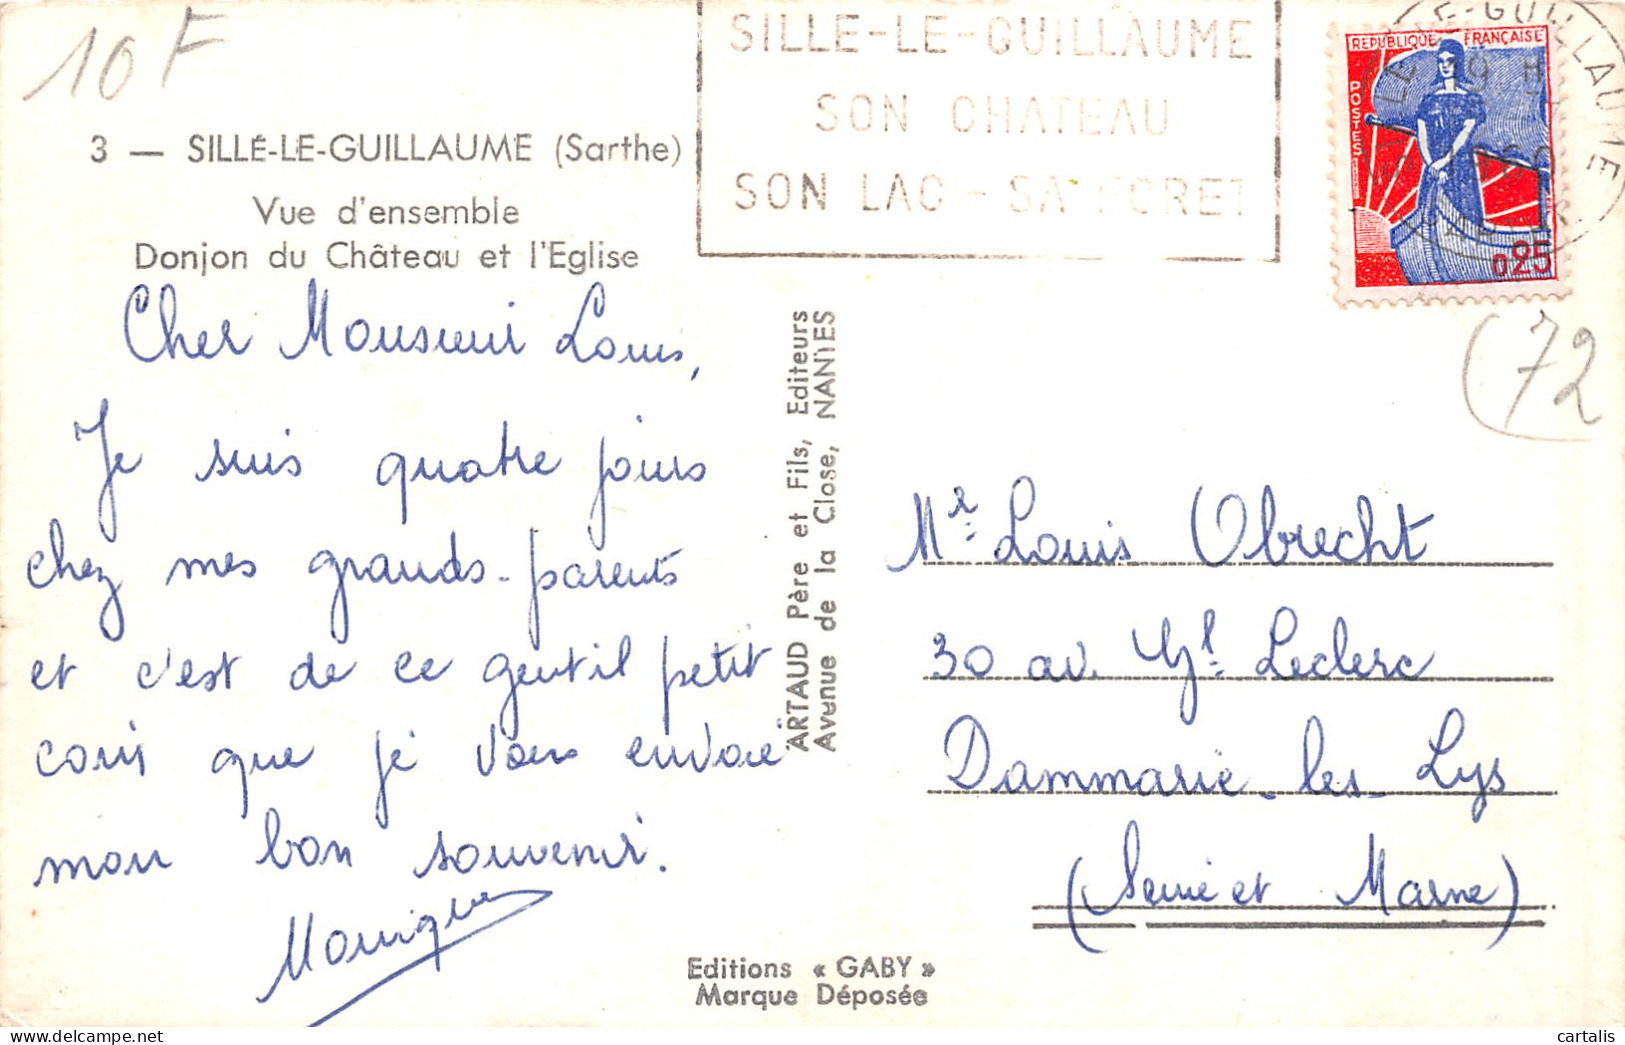 10F
3 — SILLÉ-LE-GUILLAUME (Sarthe)
Vue d'ensemble
Donjon du Château et l'Eglise
Cher Monsieur Louis,
Je suis quatre jours
chez mes grands-parents
et c'est de ce gentil petit
coin que je vous envoie
mon bon souvenir.
Monique
ARTAUD Père et Fils, Editeurs
Avenue de la Close, NANTES
Editions « GABY »
Marque Déposée
SILLE-LE-GUILLAUME
SON CHATEAU
SON LAC - SA FORET
E-GUILLAUME
REPUBLIQUE FRANÇAISE
POSTES
0,25
(72
Mr Louis Obrecht
30 av. Gl Leclerc
Dammarie-les-Lys
(Seine et Marne)
cartalis